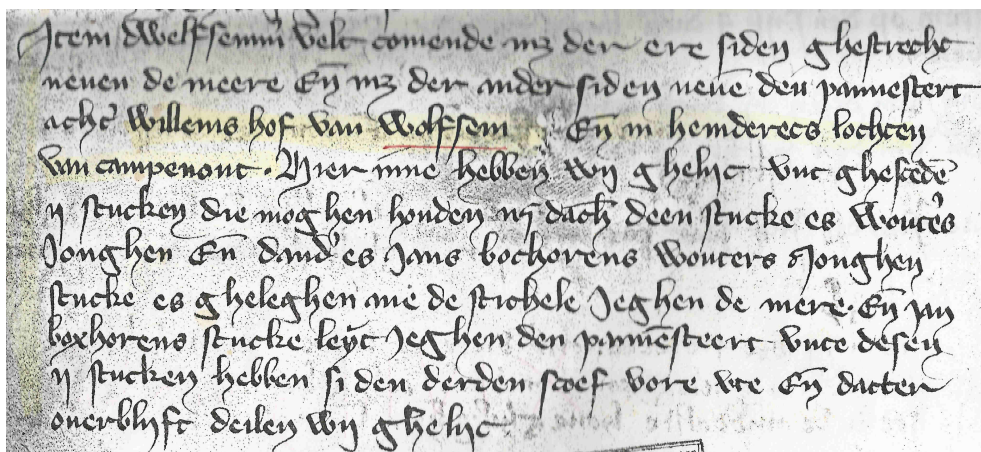 Jtem dwelfsemm̄ velt comende mz der ere siden ghestrecht
neuen de meere En̄ mz der ander siden neuē den pannestert
acht' willems hof van wolfsem En̄ in heinderecs lochten
van campenout. Hier inne hebben wy ghelijc vut ghescedē
ij stucken die moghen houden iij dach̄ deen stucke es wout's
Jonghen En̄ dand' es Jans bochorens wouters Jonghen
stucke es gheleghen ane de stichele Jeghen de mere. En̄ Jan
boxhorens stucke leyt Jeghen den pannēsteert vute desen
ij stucken hebben si den derden scoef vore vte En̄ datter
ouerblijft deilen wij ghelijc